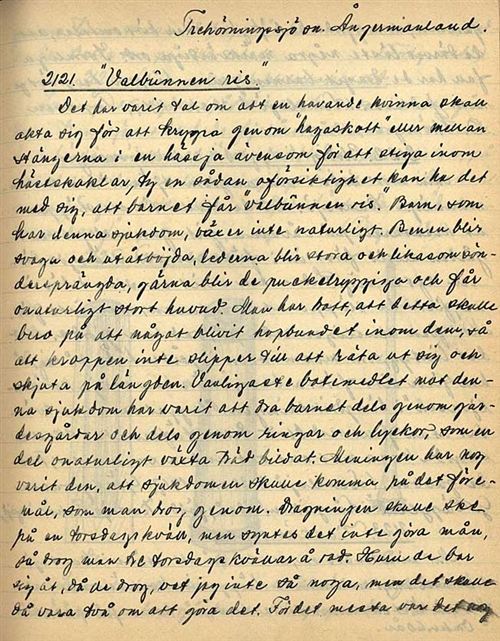 Trehörningsjö sn. Ångermanland.
2121. "Valbünnen ris"
Det har varit tal om att en havande kvinna skall
akta sig för att krypa genom "hagaskott" eller mellan
stängerna i en hässja ävensom för att stiga inom
hästskaklar, ty en sådan oförsiktighet kan ha det
med sig, att barnet får "valbünnen ris." Barn, som
har denna sjukdom, växer inte naturligt. Benen blir
svaga och utåtböjda, lederna blir stora och likasom sön-
dersprängda, gärna blir de puckelryggiga och får
onaturligt stort huvud. Man har trott, att detta skulle
bero på att något blivit hopbundet inom dem, så
att kroppen inte slipper till att räta ut sig och
skjuta på längden. Vanligaste botemedlet mot den-
na sjukdom har varit att dra barnet dels genom gär-
desgårdar och dels genom ringar och lyckor, som en
del onaturligt växta träd bildat. Meningen har nog
varit den, att sjukdomen skulle komma på det före-
mål, som man drog genom. Dragningen skulle ske
på en torsdagskväll, men syntes det inte göra mån,
så drog man tre torsdagskvällar å rad. Huru de bar
sig åt, då de drog, vet jag inte så noga, men det skulle
då vara två om att göra det. För det mesta var det nog